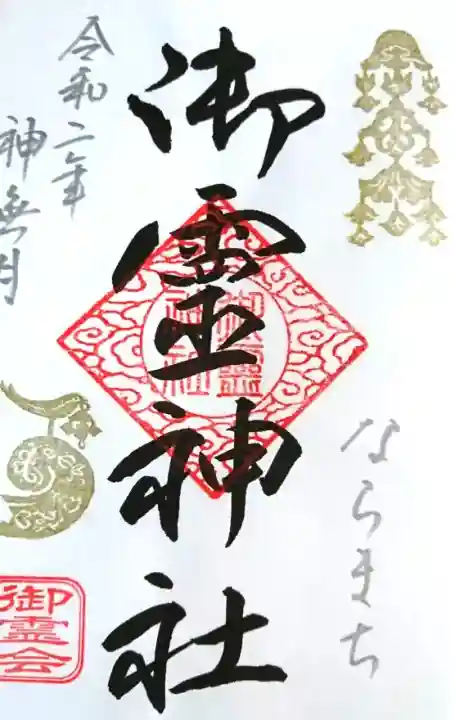 ならまち
御霊神社
御霊神社
令和二年
神無月
御霊会